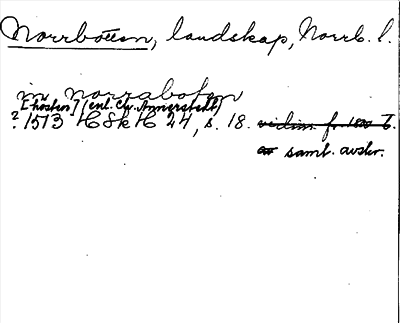 Norrbotten, landskap, Norrb. l.
in norrabotn
[hösten] (enl. Chr. Annerstedt)
? 1513 HSkH 24, s. 18. vidim. f. 1500 T.
samt. avskr.